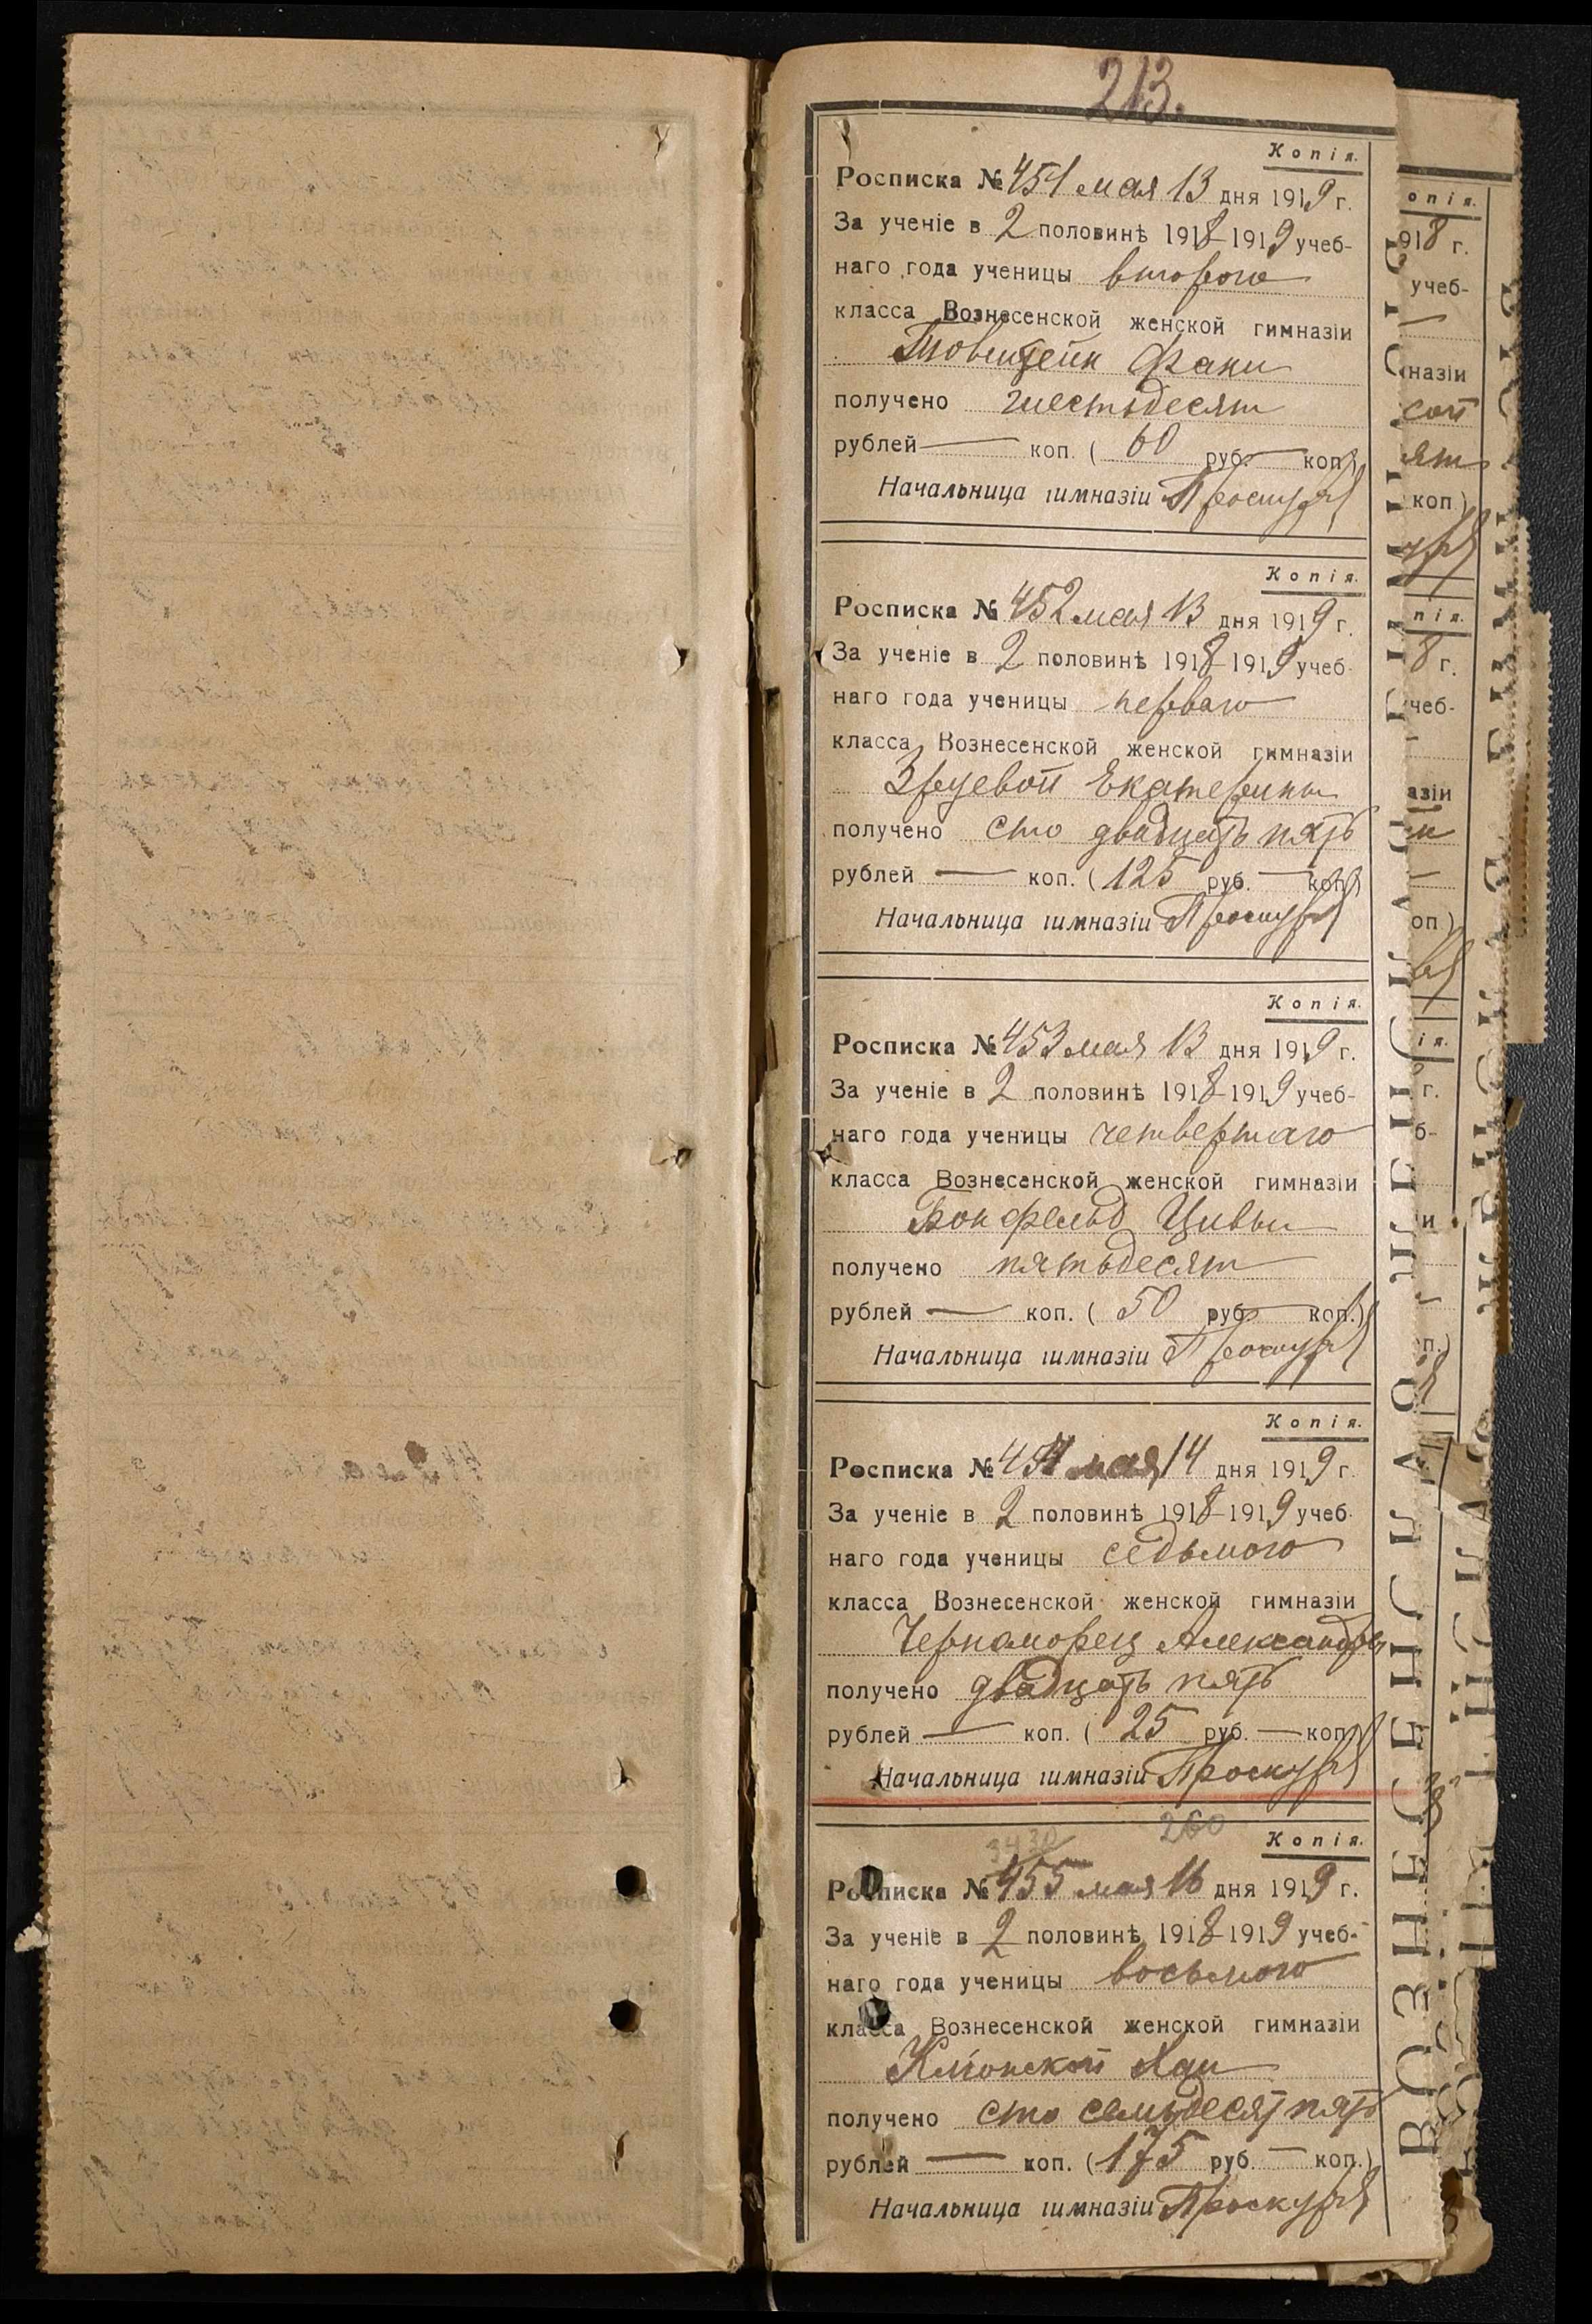 213.
Копія.
Росписка № 451 мая 13 дня 1919 г.
За ученіе в 2 половинѣ 1918-1919 учеб-
наго года ученицы второго
класса Вознесенской женской гимназіи
Фани
получено шестьдесят
рублей — коп. ( 60 руб. — коп.)
Начальница гимназіи Проскура
Копія.
Росписка № 452 мая 13 дня 1919 г.
За ученіе в 2 половинѣ 1918-1919 учеб-
наго года ученицы перваго
класса Вознесенской женской гимназіи
Екатерины
получено сто двадцать пять
рублей — коп. ( 125 руб. — коп.)
Начальница гимназіи Проскура
Копія.
Росписка № 453 мая 13 дня 1919 г.
За ученіе в 2 половинѣ 1918-1919 учеб-
наго года ученицы четвертаго
класса Вознесенской женской гимназіи
Бонфельд Цивы
получено пятьдесят
рублей — коп. ( 50 руб. — коп.)
Начальница гимназіи Проскура
Копія.
Росписка № 454 мая 14 дня 1919 г.
За ученіе в 2 половинѣ 1918-1919 учеб-
наго года ученицы седьмого
класса Вознесенской женской гимназіи
Черноморец Александры
получено двадцать пять
рублей — коп. ( 25 руб. — коп.)
Начальница гимназіи Проскура
3430 260
Копія.
Росписка № 455 мая 16 дня 1919 г.
За ученіе в 2 половинѣ 1918-1919 учеб-
наго года ученицы восьмого
класса Вознесенской женской гимназіи
Хаи
получено сто семьдесят пять
рублей — коп. ( 175 руб. — коп.)
Начальница гимназіи Проскура